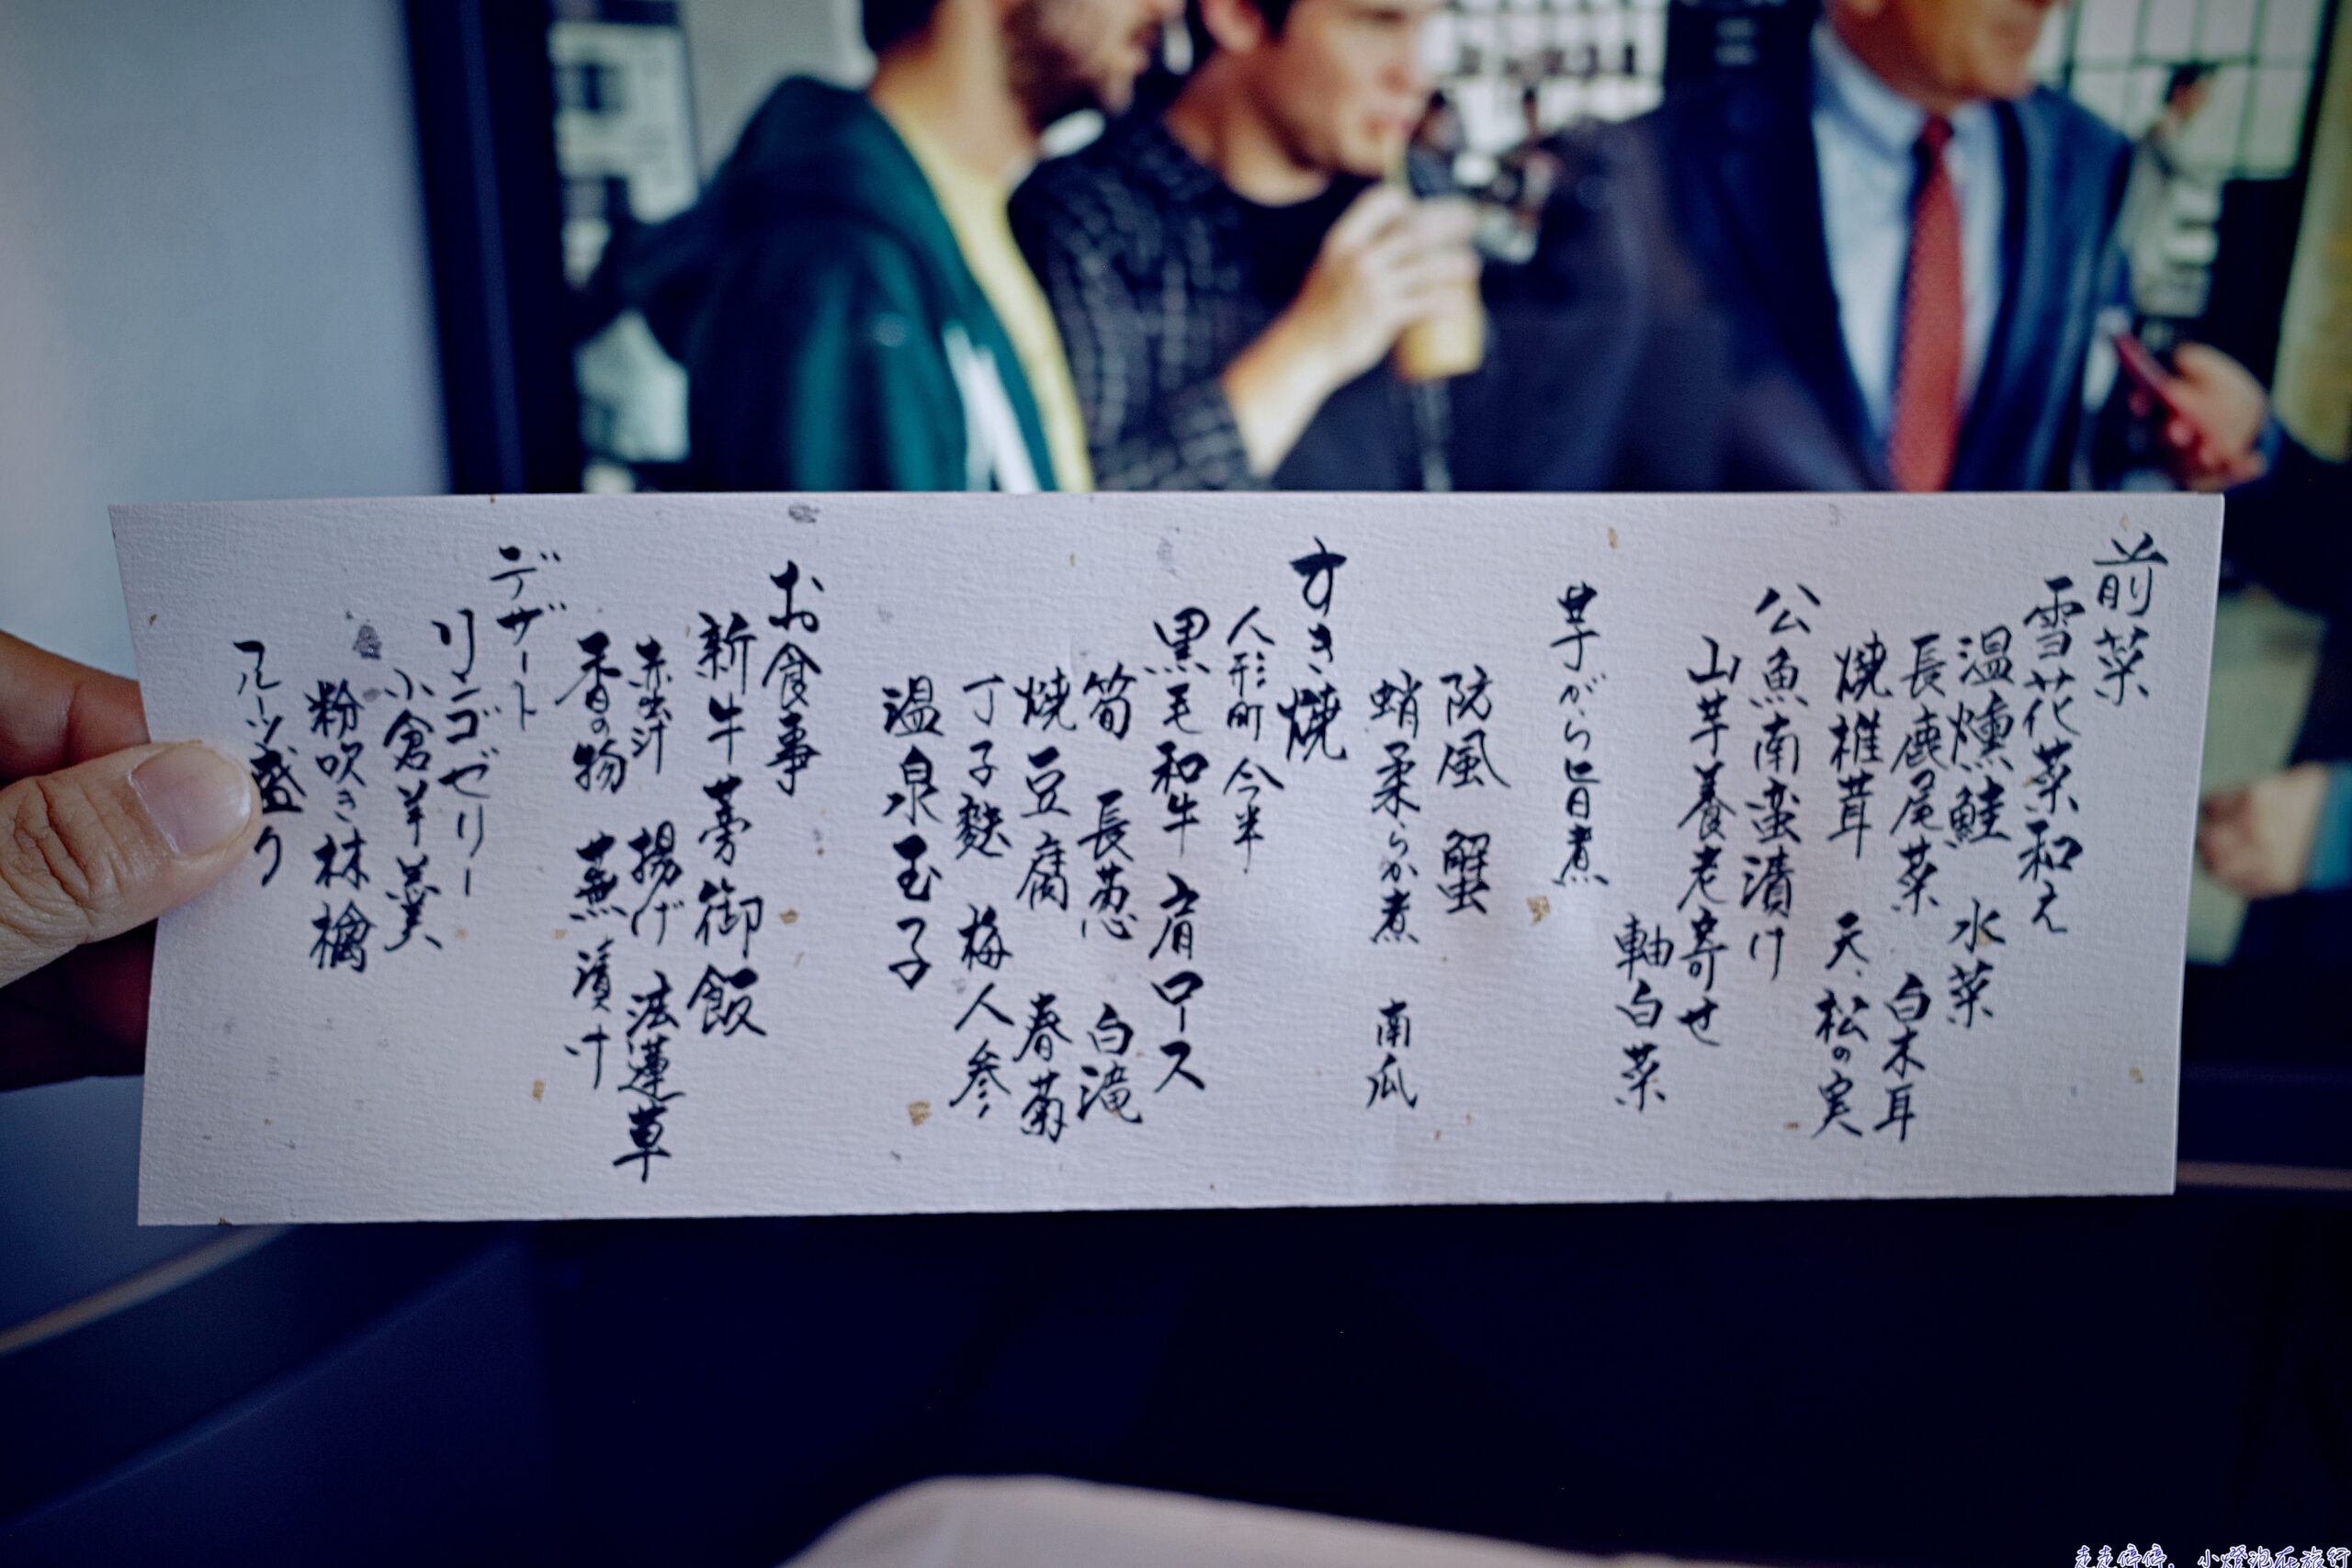 前菜
雪花菜和え
温燻鮭 水菜
長鹿尾菜 白木耳
焼椎茸 天、松の実
公魚南蛮漬け
山芋養老寄せ
軸白菜
芋がら旨煮
防風 蟹
蛸柔らか煮 南瓜
すき焼
人形町 今半
黒毛和牛 肩ロース
筍 長葱 白滝
焼豆腐 春菊
丁子麩 梅人参
温泉玉子
お食事
新牛蒡御飯
赤出汁 揚げ 法蓮草
香の物 蕪漬け
デザート
リンゴゼリー
小倉羊羹
粉吹き林檎
フルーツ盛り
走走停停，小燈泡在旅行